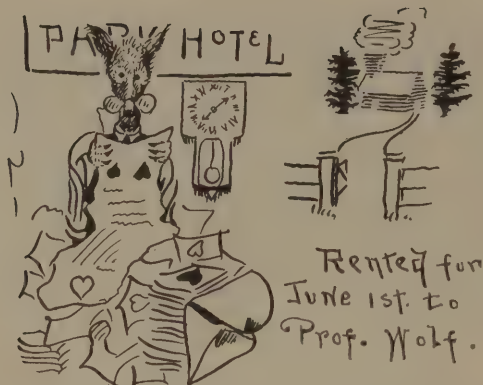 PARK HOTEL
Rented fur
June 1st. to
Prof. Wolf.